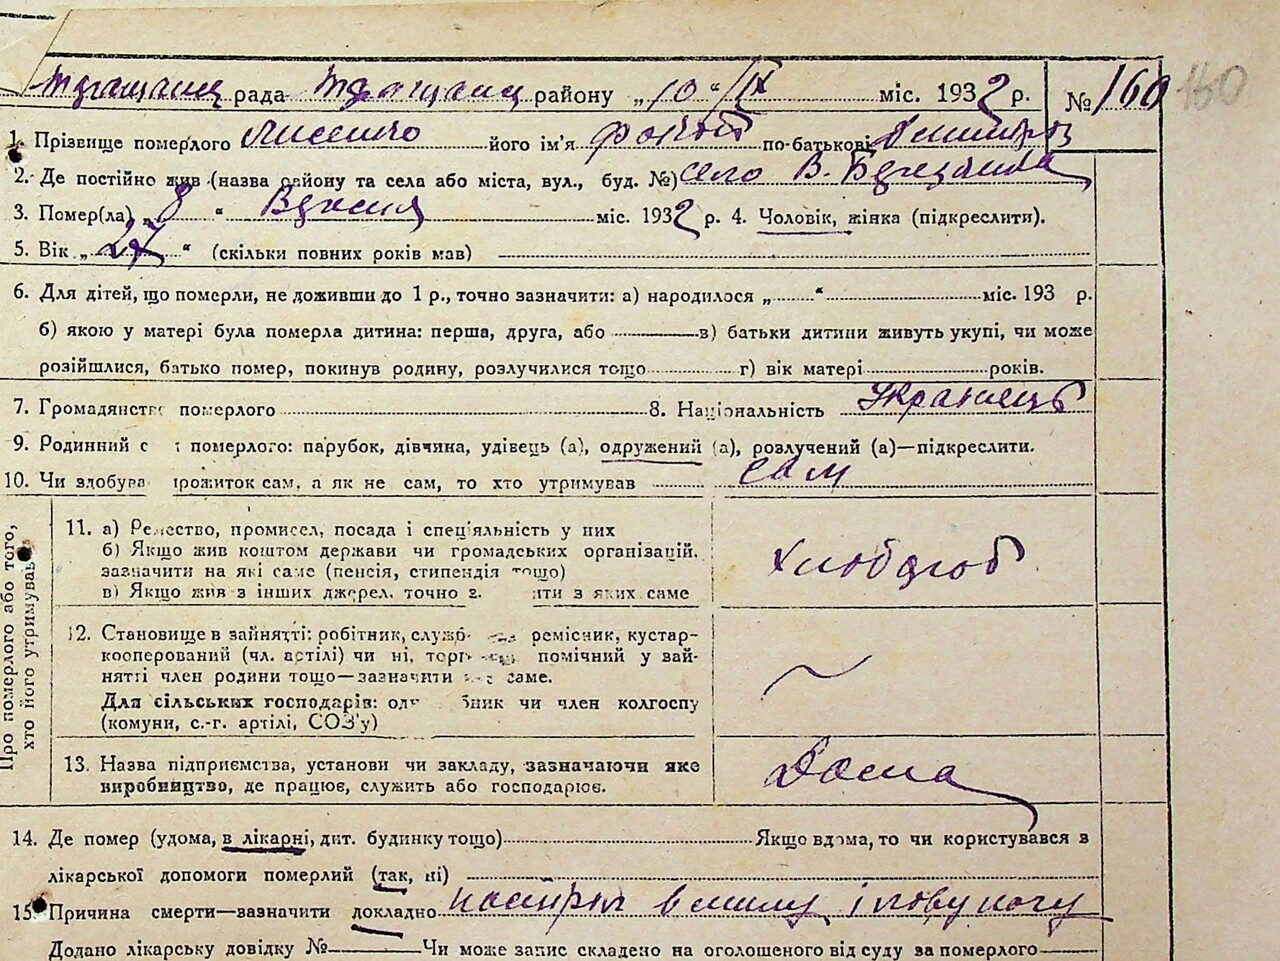 рада району „10“ IX міс. 1932 р. № 160 160
1. Прізвище померлого Лисенко його ім'я по-батькові
2. Де постійно жив (назва району та села або міста, вул., буд. №) село В. Березанка
3. Помер(ла) „8“ Вересня міс. 1932 р. 4. Чоловік, жінка (підкреслити).
5. Вік „27“ (скільки повних років мав)
6. Для дітей, що померли, не доживши до 1 р., точно зазначити: а) народилося „ “ міс. 193 р.
б) якою у матері була померла дитина: перша, друга, або в) батьки дитини живуть укупі, чи може
розійшлися, батько помер, покинув родину, розлучилися тощо г) вік матері років.
7. Громадянство померлого 8. Національність Українець
9. Родинний с т померлого: парубок, дівчина, удівець (а), одружений (а), розлучений (а)—підкреслити.
10. Чи здобува прожиток сам, а як не сам, то хто утримував сам
Про померлого або того, хто його утримував
11. а) Ремество, промисел, посада і спеціяльність у них
б) Якщо жив коштом держави чи громадських організацій,
зазначити на які саме (пенсія, стипендія тощо)
в) Якщо жив з інших джерел, точно з яких саме
хлібороб
12. Становище в зайнятті: робітник, служб ремісник, кустар-
кооперований (чл. артілі) чи ні, торг помічний у зай-
нятті член родини тощо—зазначити саме.
Для сільських господарів: од бник чи член колгоспу
(комуни, с.-г. артілі, СОЗ'у)
13. Назва підприємства, установи чи закладу, зазначаючи яке
виробництво, де працює, служить або господарює.
Дома
14. Де помер (удома, в лікарні, дит. будинку тощо) Якщо вдома, то чи користувався в
лікарської допомоги померлий (так, ні)
15. Причина смерти—зазначити докладно і ногу
Додано лікарську довідку № Чи може запис складено на оголошеного від суду за померлого